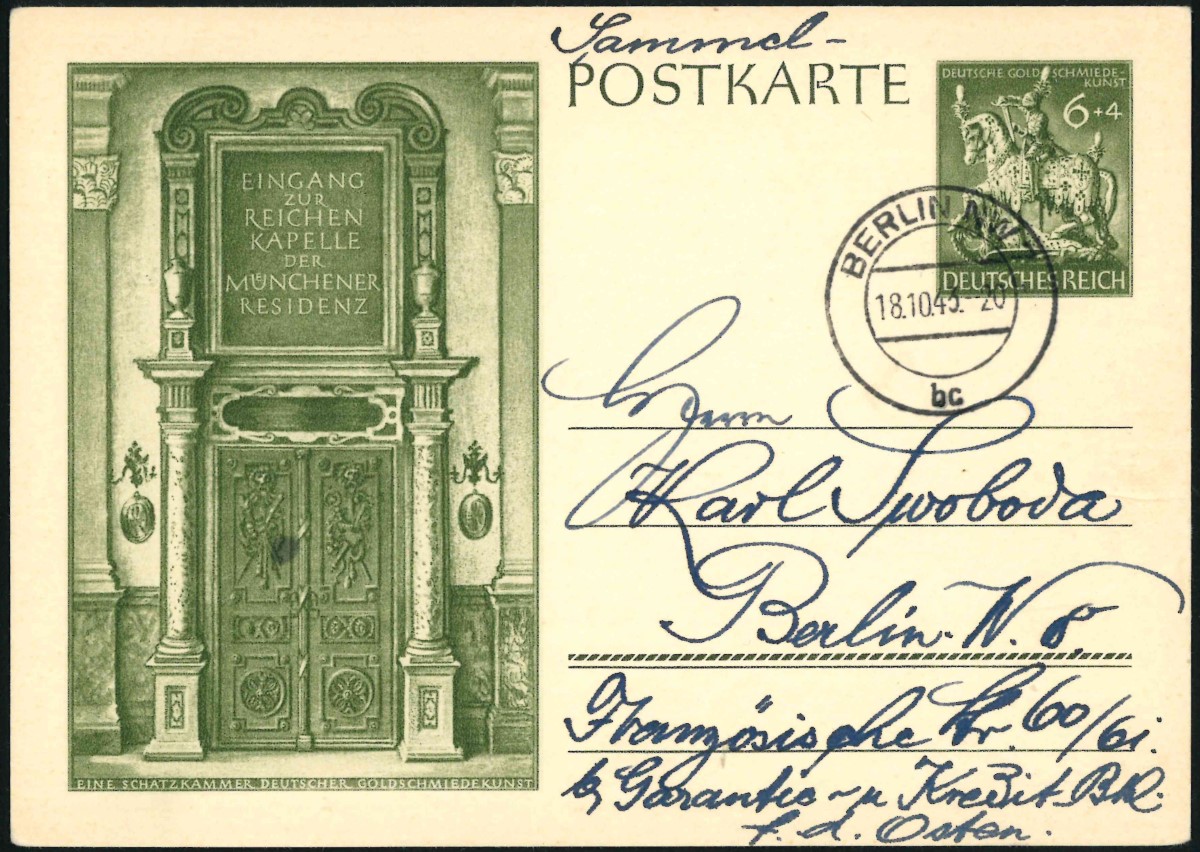 EINGANG
ZUR
REICHEN
KAPELLE
DER
MÜNCHENER
RESIDENZ
EINE SCHATZKAMMER DEUTSCHER GOLDSCHMIEDEKUNST
Sammel-
POSTKARTE
DEUTSCHE GOLDSCHMIEDE-
KUNST
6+4
DEUTSCHES REICH
BERLIN NW 7
18.10.43.-20
bc
Herrn
Karl Swoboda
Berlin. W. 8.
Französische Str. 60/61.
b/ Garantie- u Kredit-Bk.
f. d. Osten.